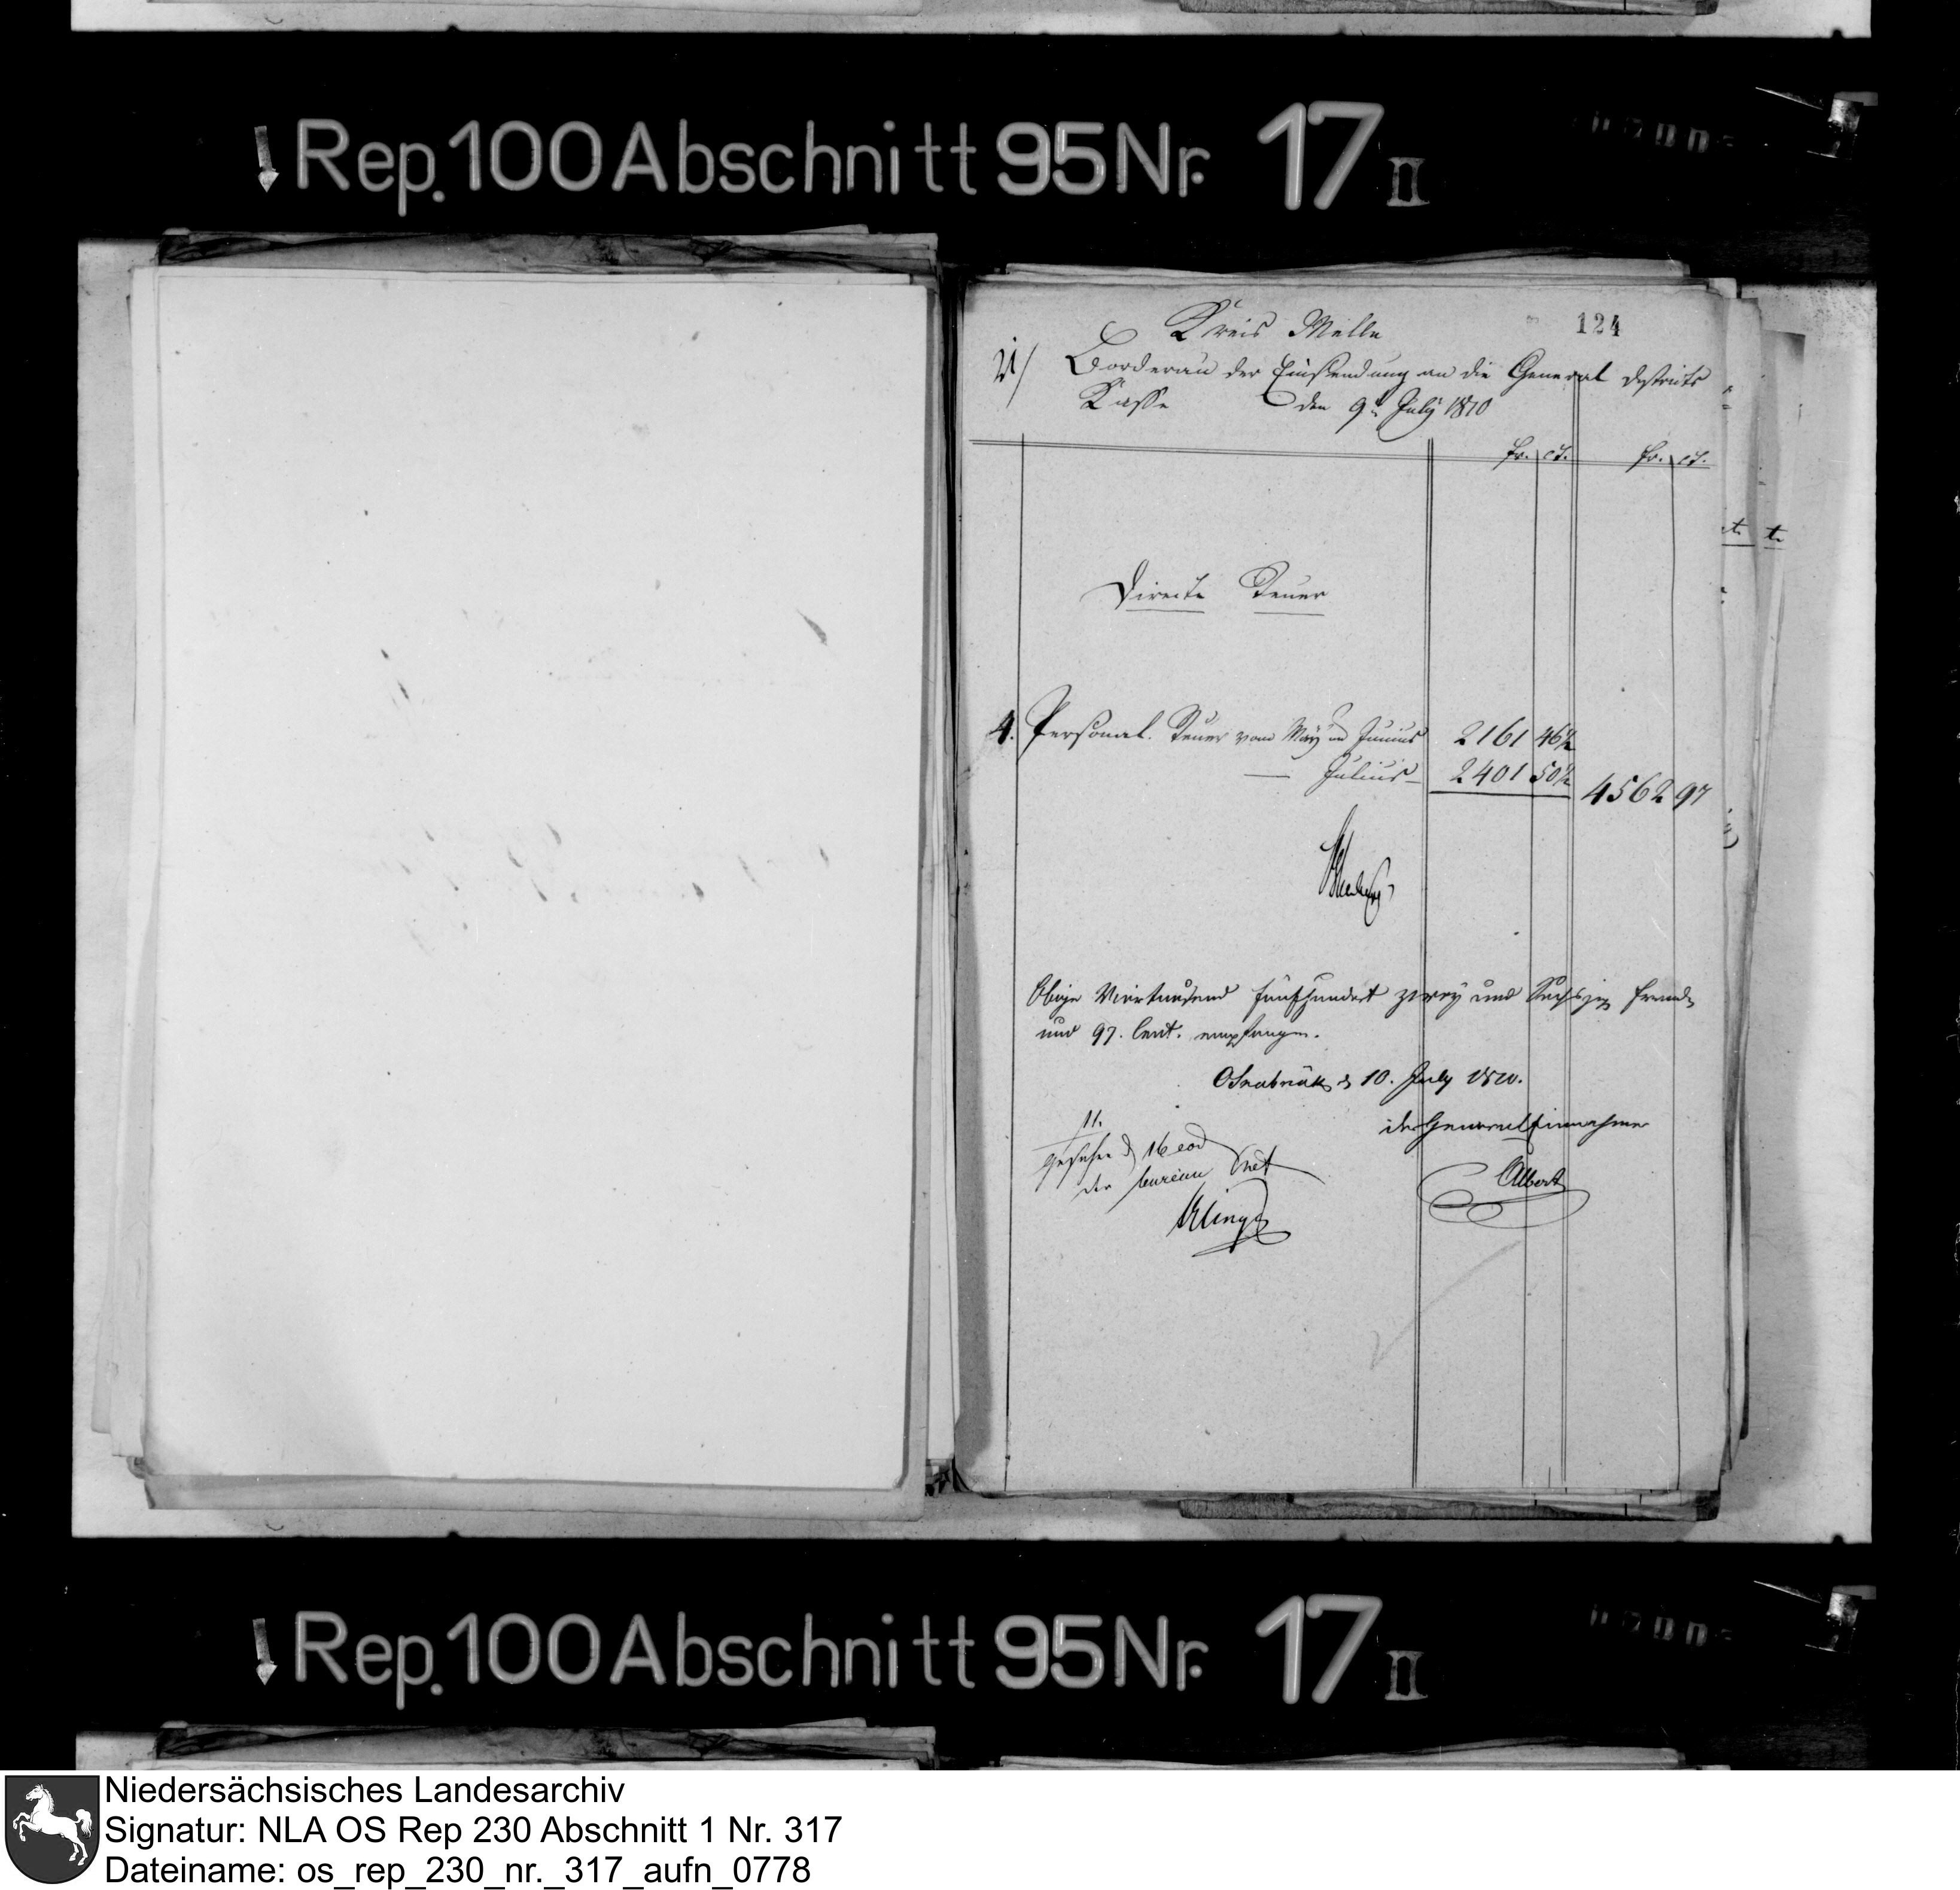 Rep. 100 Abschnitt 95 Nr. 17 II
124
Kreis Melle
Borderau der Einsendung an die General Destricts
Kasse den 9t July 1810
fr. ct. fr. ct.
Directe Steuer
4. Personal. Steuer vom May und Junius 2161 46½
— Julius — 2401 50½ 4562 97
Obige Viertausend fünfhundert zwey und Sechszig Frank
und 97. Cent. empfangen.
Osnabrük d 10. July 1810.
der General Einnehmer
Albert
11.
gesehen d 16 eod
der bureau Chef
t. t.
Rep. 100 Abschnitt 95 Nr. 17 II
Niedersächsisches Landesarchiv
Signatur: NLA OS Rep 230 Abschnitt 1 Nr. 317
Dateiname: os_rep_230_nr._317_aufn_0778